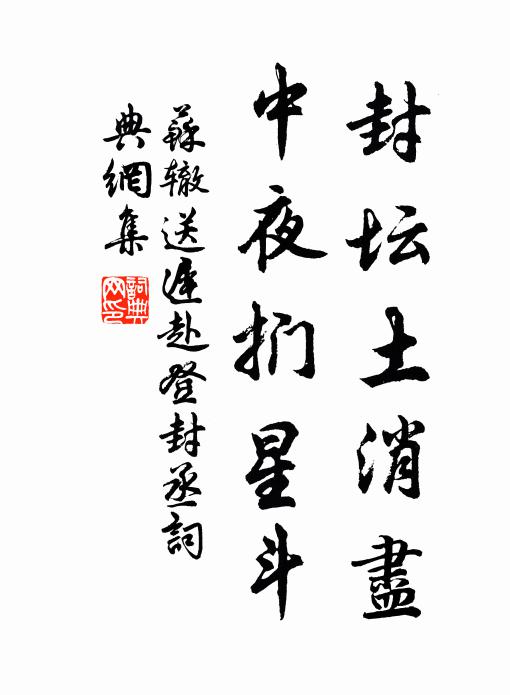 封坛土消盡
中夜扪星斗
蘇辙送遲赴登封丞詞
典網集
詞典网印